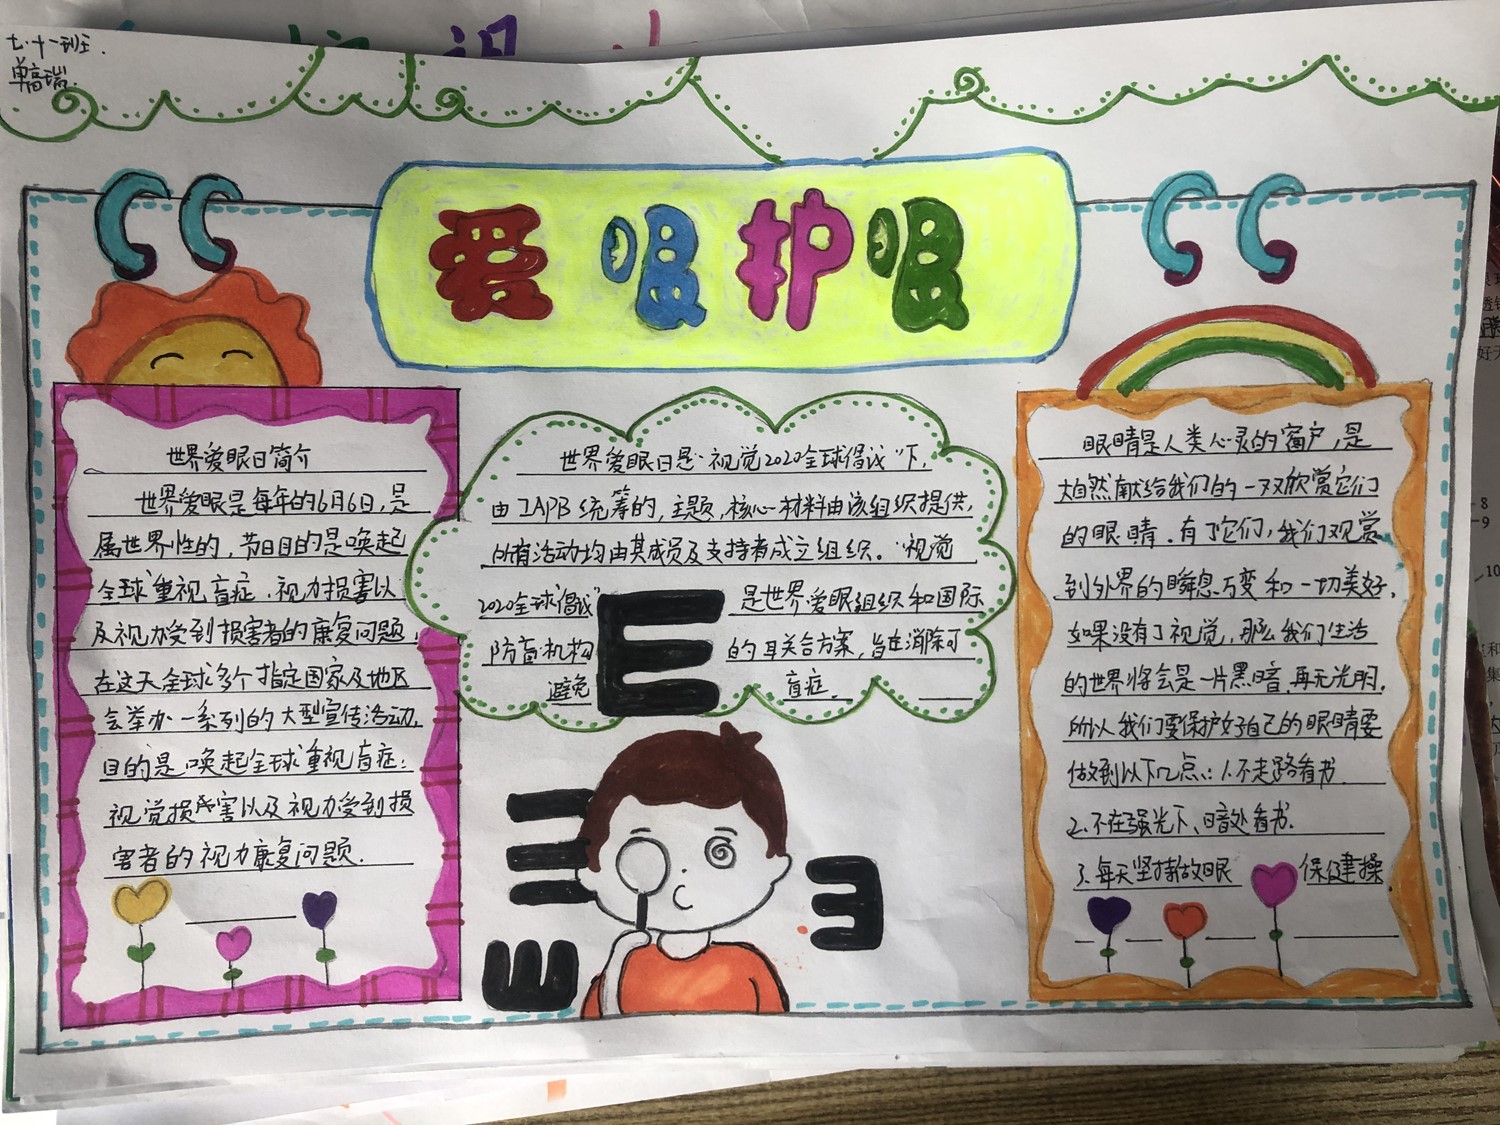 七·十一班
单高瑞
爱眼护眼
世界爱眼日简介
世界爱眼是每年的6月6日,是
属世界性的,节日目的是唤起
全球重视盲症、视力损害以
及视力受到损害者的康复问题,
在这天全球多个指定国家及地区
会举办一系列的大型宣传活动,
目的是唤起全球重视盲症:
视觉损害以及视力受到损
害者的视力康复问题.
世界爱眼日是"视觉2020全球倡议"下,
由IAPB统筹的,主题,核心材料由该组织提供,
所有活动均由其成员及支持者成立组织。"视觉
2020全球倡议" 是世界爱眼组织和国际
防盲机构 的联合方案,旨在消除可
避免 盲症.
E
E
E
E
眼睛是人类心灵的窗户,是
大自然献给我们的一双欣赏它们
的眼睛.有了它们,我们观赏
到外界的瞬息万变和一切美好.
如果没有了视觉,那么我们生活
的世界将会是一片黑暗.再无光明.
所以我们要保护好自己的眼睛要
做到以下几点:1.不走路看书.
2.不在强光下、暗处看书.
3.每天坚持做眼保健操.